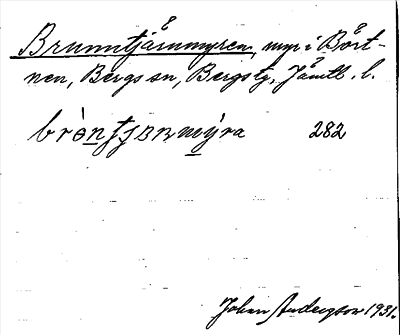 Brunntjärnmyren, myr i Bört-
nen, Bergs sn, Bergs tg, Jämtl. l.
282
Johan Andersson 1931.